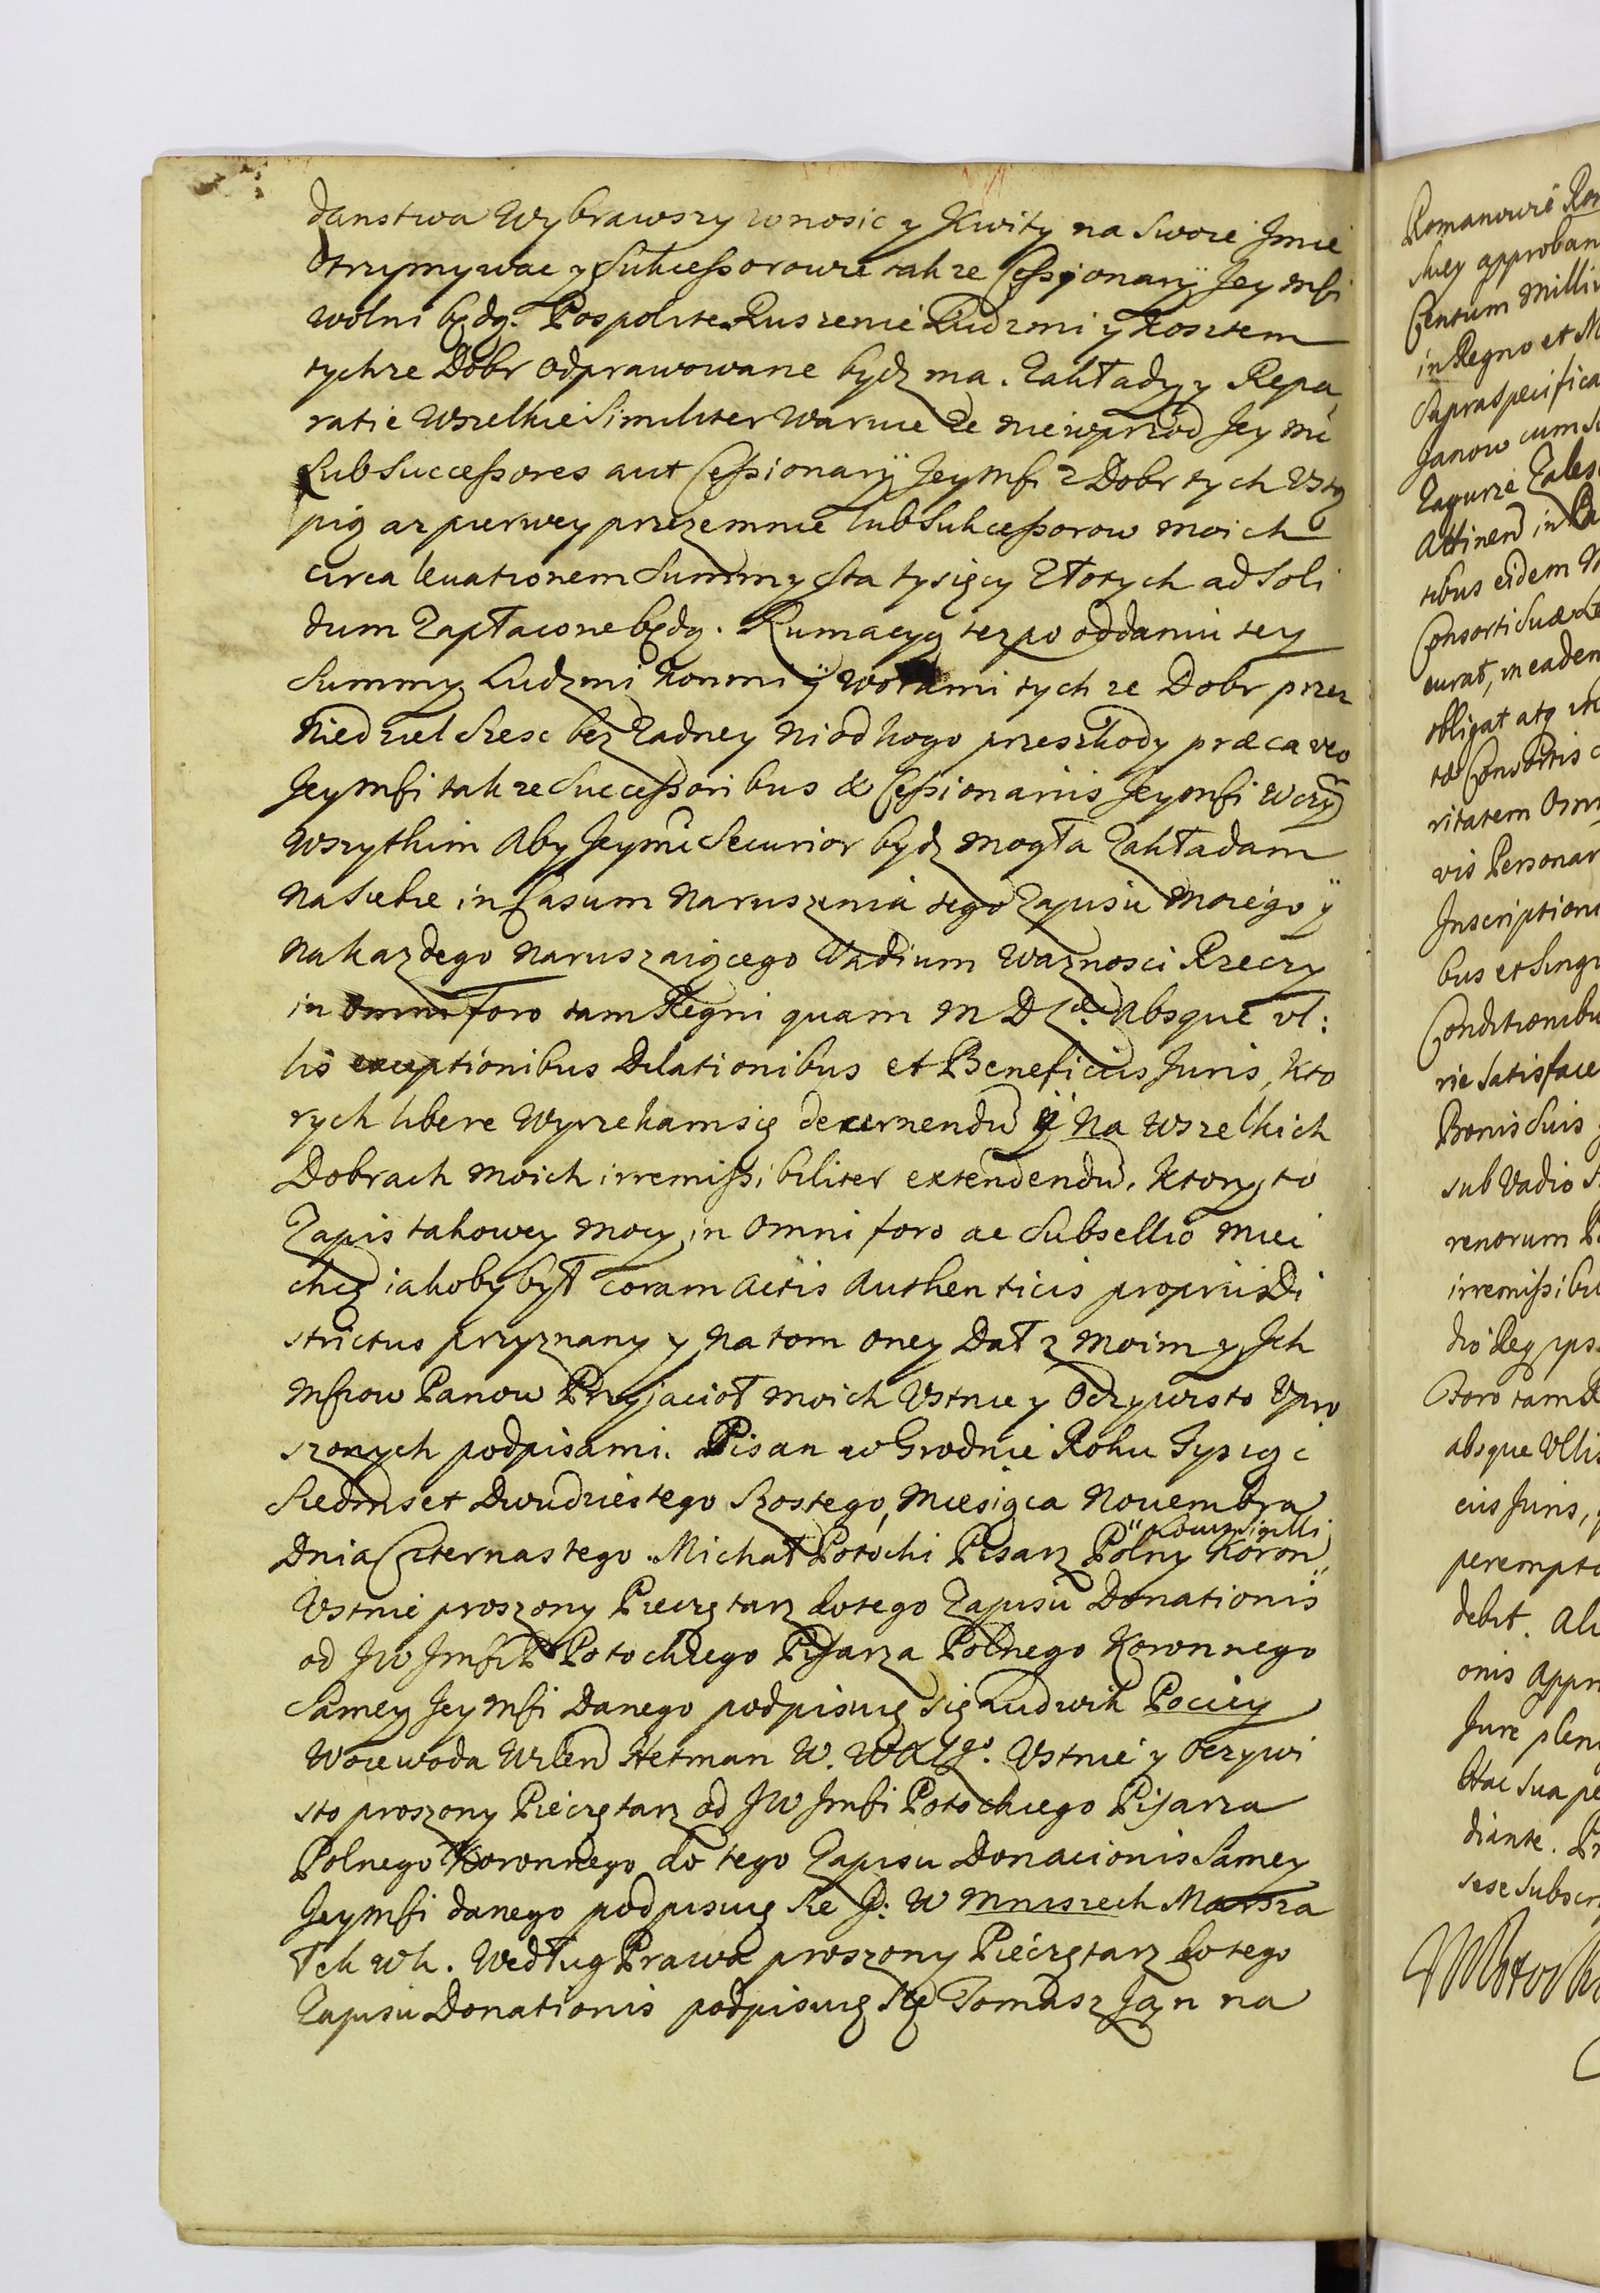 danstwa Wybrawszy wnosic y Kwity na Swoie Jmie
Otrzymywac y Sukcessorowie takze Cessyonarÿ JeyMsci
wolni będą. Pospolite Ruszenie Ludzmi y Kosztem
tychze Dobr Odprawowane bydz ma. Zakłady y Repa
ratie Wszelkie Similiter Waruie ze nie wprzod Jey Mć
Lub Successores aut Cessionarÿ JeyMsci z Dobr tych Vstą
pią az pierwey przezemnie lub Sukcessorow moich
circa leuationem Summy Sta tysięcy Złotych ad Soli
dum Zapłacone będą. Rumacyą tez po oddaniu tey
Summy Ludzmi konmi ÿ wołami tychze Dobr przez
Niedziel Szesc bez Zadney ni od kogo przeszkody præcaveo
JeyMsci takze Successoribus & Cessionariis JeyMsci W czÿm
Wszytkim Aby JeyMć Securior bydz mogła Zakładam
Na Siebie in Casum Naruszenia tego Zapisu Moiego ÿ
Na kazdego Naruszaiącego Vadium Waznosci Rzeczy
in Omni foro tam Regni quam M D L. Absque vl:
lis exceptionibus Dilationibus et Beneficiis Juris, Kto
rych libere Wyrzekam się decernendũ ÿ Na Wszelkich
Dobrach Moich irremissibiliter extendendũ. Ktory to
Zapis takowey Mocy in Omni foro ac Subsellio Miec
chcę iakoby był coram Actis Authenticis propriis Di
strictus przyznany y Na tom Oney Dał z Moim y Jch
Msciow Panow Przyjacioł Moich Vstnie y Oczywisto Vpro
szonych podpisami. Pisan w Grodnie Roku Tysiąc
Siedmset Dwudziestego Szostego, Miesiąca Nouembra
Locus Sigilli
Dnia Czternastego. Michał Potocki Pisarz Polny Koron
Vstnie proszony Pieczętarz do tego Zapisu Donationis
od JW Jmsci P Potockiego Pisarza Polnego Koronnego
Samey JeyMsci Danego podpisuię się Ludwik Pociey
Woiewoda Wilen Hetman W. W X Lgo. Vstnie y Oczywi
sto proszony Pieczętarz od JW Jmsci Potockiego Pisarza
Polnego Koronnego do tego Zapisu Donacionis Samey
JeyMsci danego podpisuię sie J: W Mniszech Marsza
łek Wk. Według Prawa proszony Pieczętarz do tego
Zapisu Donationis podpisuię się Tomasz Jan na
Romanowie
skiey
Centum
in Regno et
Supraspecifica
Janow cum
Zagurze
Attinen in
tibus eidem
Consorti Suæ
curat, in eadem
obligat atq
Consortis
ritatem
vis Personar
Inscription
bus et Singu
Conditionibu
rie Satisface
Bonis Suis
sub Vadio
renorum
irremissibi
dio
Foro tam
absque Vllis
ciis Juris,
perempto
debit.
onis
Jure plen
Hac Sua
diante.
sese Subscri